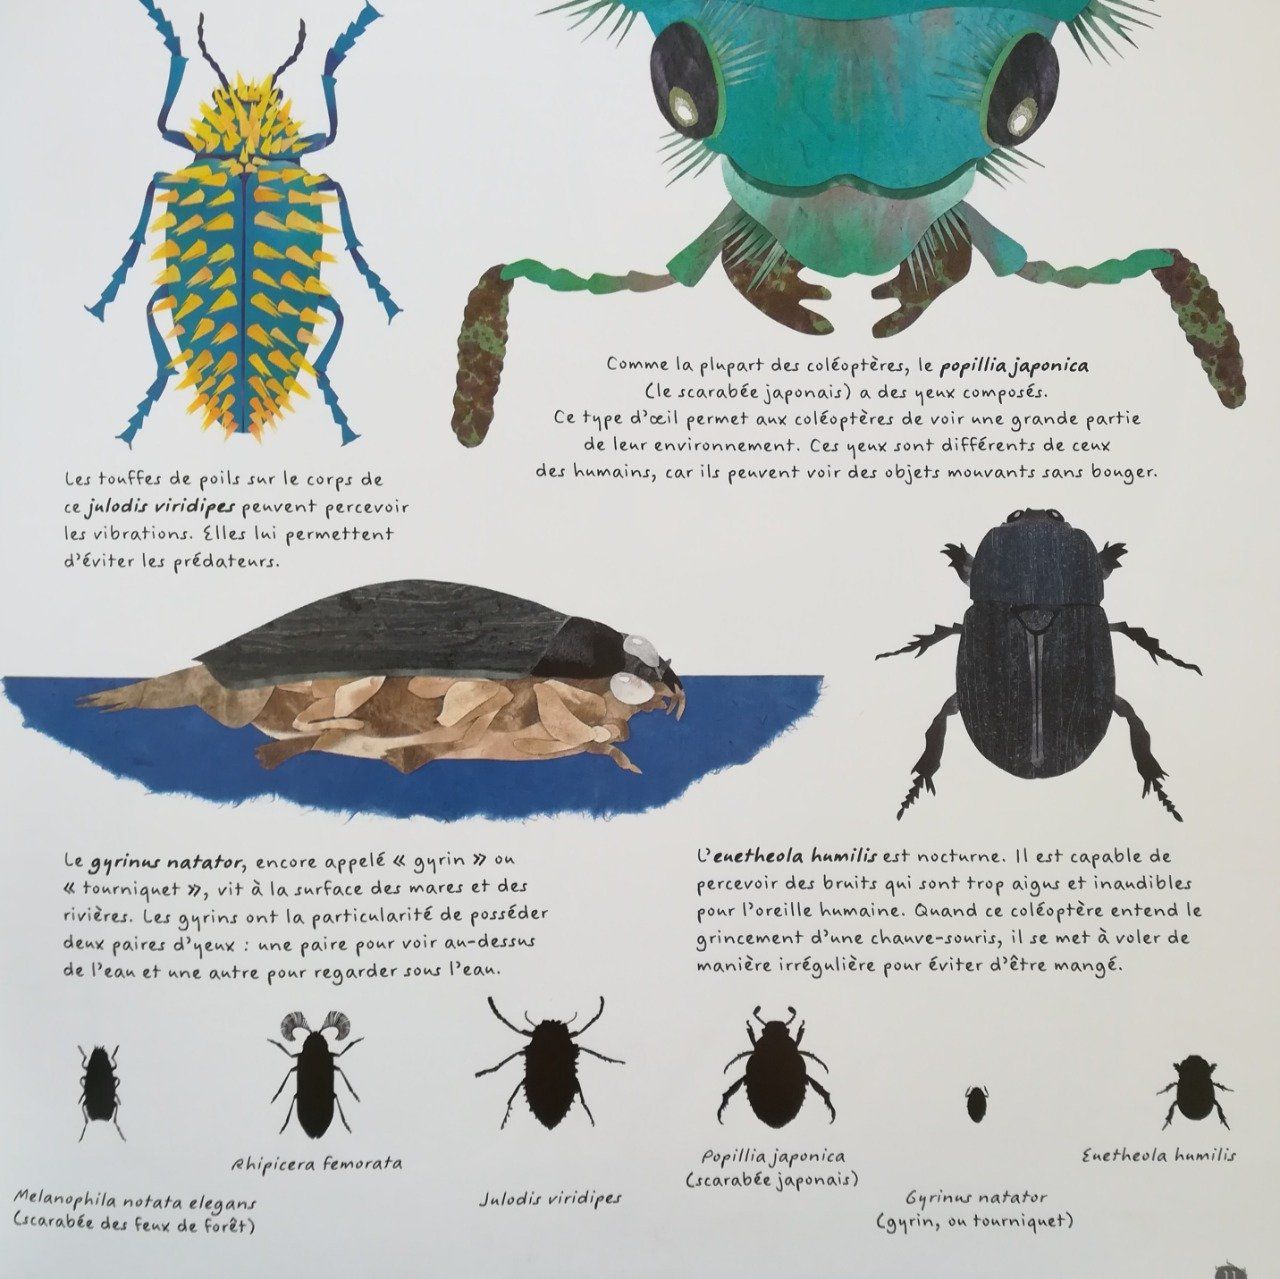 Comme la plupart des coléoptères, le popillia japonica
(le scarabée japonais) a des yeux composés.
Ce type d'œil permet aux coléoptères de voir une grande partie
de leur environnement. Ces yeux sont différents de ceux
des humains, car ils peuvent voir des objets mouvants sans bouger.
Les touffes de poils sur le corps de
ce julodis viridipes peuvent percevoir
les vibrations. Elles lui permettent
d'éviter les prédateurs.
Le gyrinus natator, encore appelé « gyrin » ou
« tourniquet », vit à la surface des mares et des
rivières. Les gyrins ont la particularité de posséder
deux paires d'yeux : une paire pour voir au-dessus
de l'eau et une autre pour regarder sous l'eau.
L'euetheola humilis est nocturne. Il est capable de
percevoir des bruits qui sont trop aigus et inaudibles
pour l'oreille humaine. Quand ce coléoptère entend le
grincement d'une chauve-souris, il se met à voler de
manière irrégulière pour éviter d'être mangé.
Melanophila notata elegans
(scarabée des feux de forêt)
Rhipicera femorata
Julodis viridipes
Popillia japonica
(scarabée japonais)
Gyrinus natator
(gyrin, ou tourniquet)
Euetheola humilis